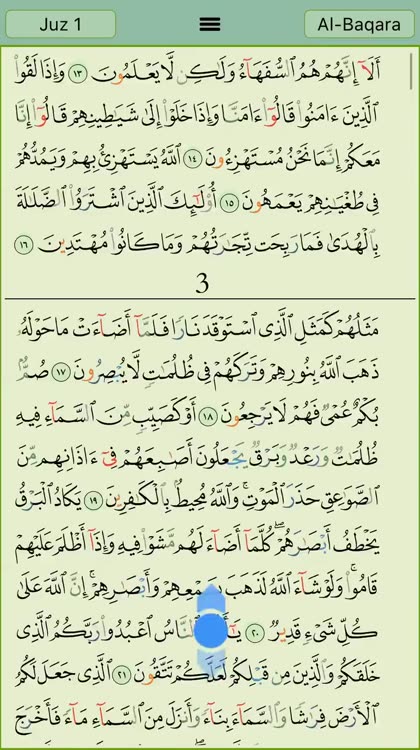 Juz 1
Al-Baqara
أَلَآ إِنَّهُمْ هُمُ ٱلسُّفَهَآءُ وَلَـٰكِن لَّا يَعْلَمُونَ ١٣ وَإِذَا لَقُوا۟
ٱلَّذِينَ ءَامَنُوا۟ قَالُوٓا۟ ءَامَنَّا وَإِذَا خَلَوْا۟ إِلَىٰ شَيَـٰطِينِهِمْ قَالُوٓا۟ إِنَّا
مَعَكُمْ إِنَّمَا نَحْنُ مُسْتَهْزِءُونَ ١٤ ٱللَّهُ يَسْتَهْزِئُ بِهِمْ وَيَمُدُّهُمْ
فِى طُغْيَـٰنِهِمْ يَعْمَهُونَ ١٥ أُو۟لَـٰٓئِكَ ٱلَّذِينَ ٱشْتَرَوُا۟ ٱلضَّلَـٰلَةَ
بِٱلْهُدَىٰ فَمَا رَبِحَت تِّجَـٰرَتُهُمْ وَمَا كَانُوا۟ مُهْتَدِينَ ١٦
3
مَثَلُهُمْ كَمَثَلِ ٱلَّذِى ٱسْتَوْقَدَ نَارًا فَلَمَّآ أَضَآءَتْ مَا حَوْلَهُۥ
ذَهَبَ ٱللَّهُ بِنُورِهِمْ وَتَرَكَهُمْ فِى ظُلُمَـٰتٍ لَّا يُبْصِرُونَ ١٧ صُمٌّۢ
بُكْمٌ عُمْىٌ فَهُمْ لَا يَرْجِعُونَ ١٨ أَوْ كَصَيِّبٍ مِّنَ ٱلسَّمَآءِ فِيهِ
ظُلُمَـٰتٌ وَرَعْدٌ وَبَرْقٌ يَجْعَلُونَ أَصَـٰبِعَهُمْ فِىٓ ءَاذَانِهِم مِّنَ
ٱلصَّوَٰعِقِ حَذَرَ ٱلْمَوْتِ ۚ وَٱللَّهُ مُحِيطٌۢ بِٱلْكَـٰفِرِينَ ١٩ يَكَادُ ٱلْبَرْقُ
يَخْطَفُ أَبْصَـٰرَهُمْ ۖ كُلَّمَآ أَضَآءَ لَهُم مَّشَوْا۟ فِيهِ وَإِذَآ أَظْلَمَ عَلَيْهِمْ
قَامُوا۟ ۚ وَلَوْ شَآءَ ٱللَّهُ لَذَهَبَ بِسَمْعِهِمْ وَأَبْصَـٰرِهِمْ ۚ إِنَّ ٱللَّهَ عَلَىٰ
كُلِّ شَىْءٍ قَدِيرٌ ٢٠ يَـٰٓأَيُّهَا ٱلنَّاسُ ٱعْبُدُوا۟ رَبَّكُمُ ٱلَّذِى
خَلَقَكُمْ وَٱلَّذِينَ مِن قَبْلِكُمْ لَعَلَّكُمْ تَتَّقُونَ ٢١ ٱلَّذِى جَعَلَ لَكُمُ
ٱلْأَرْضَ فِرَٰشًا وَٱلسَّمَآءَ بِنَآءً وَأَنزَلَ مِنَ ٱلسَّمَآءِ مَآءً فَأَخْرَجَ